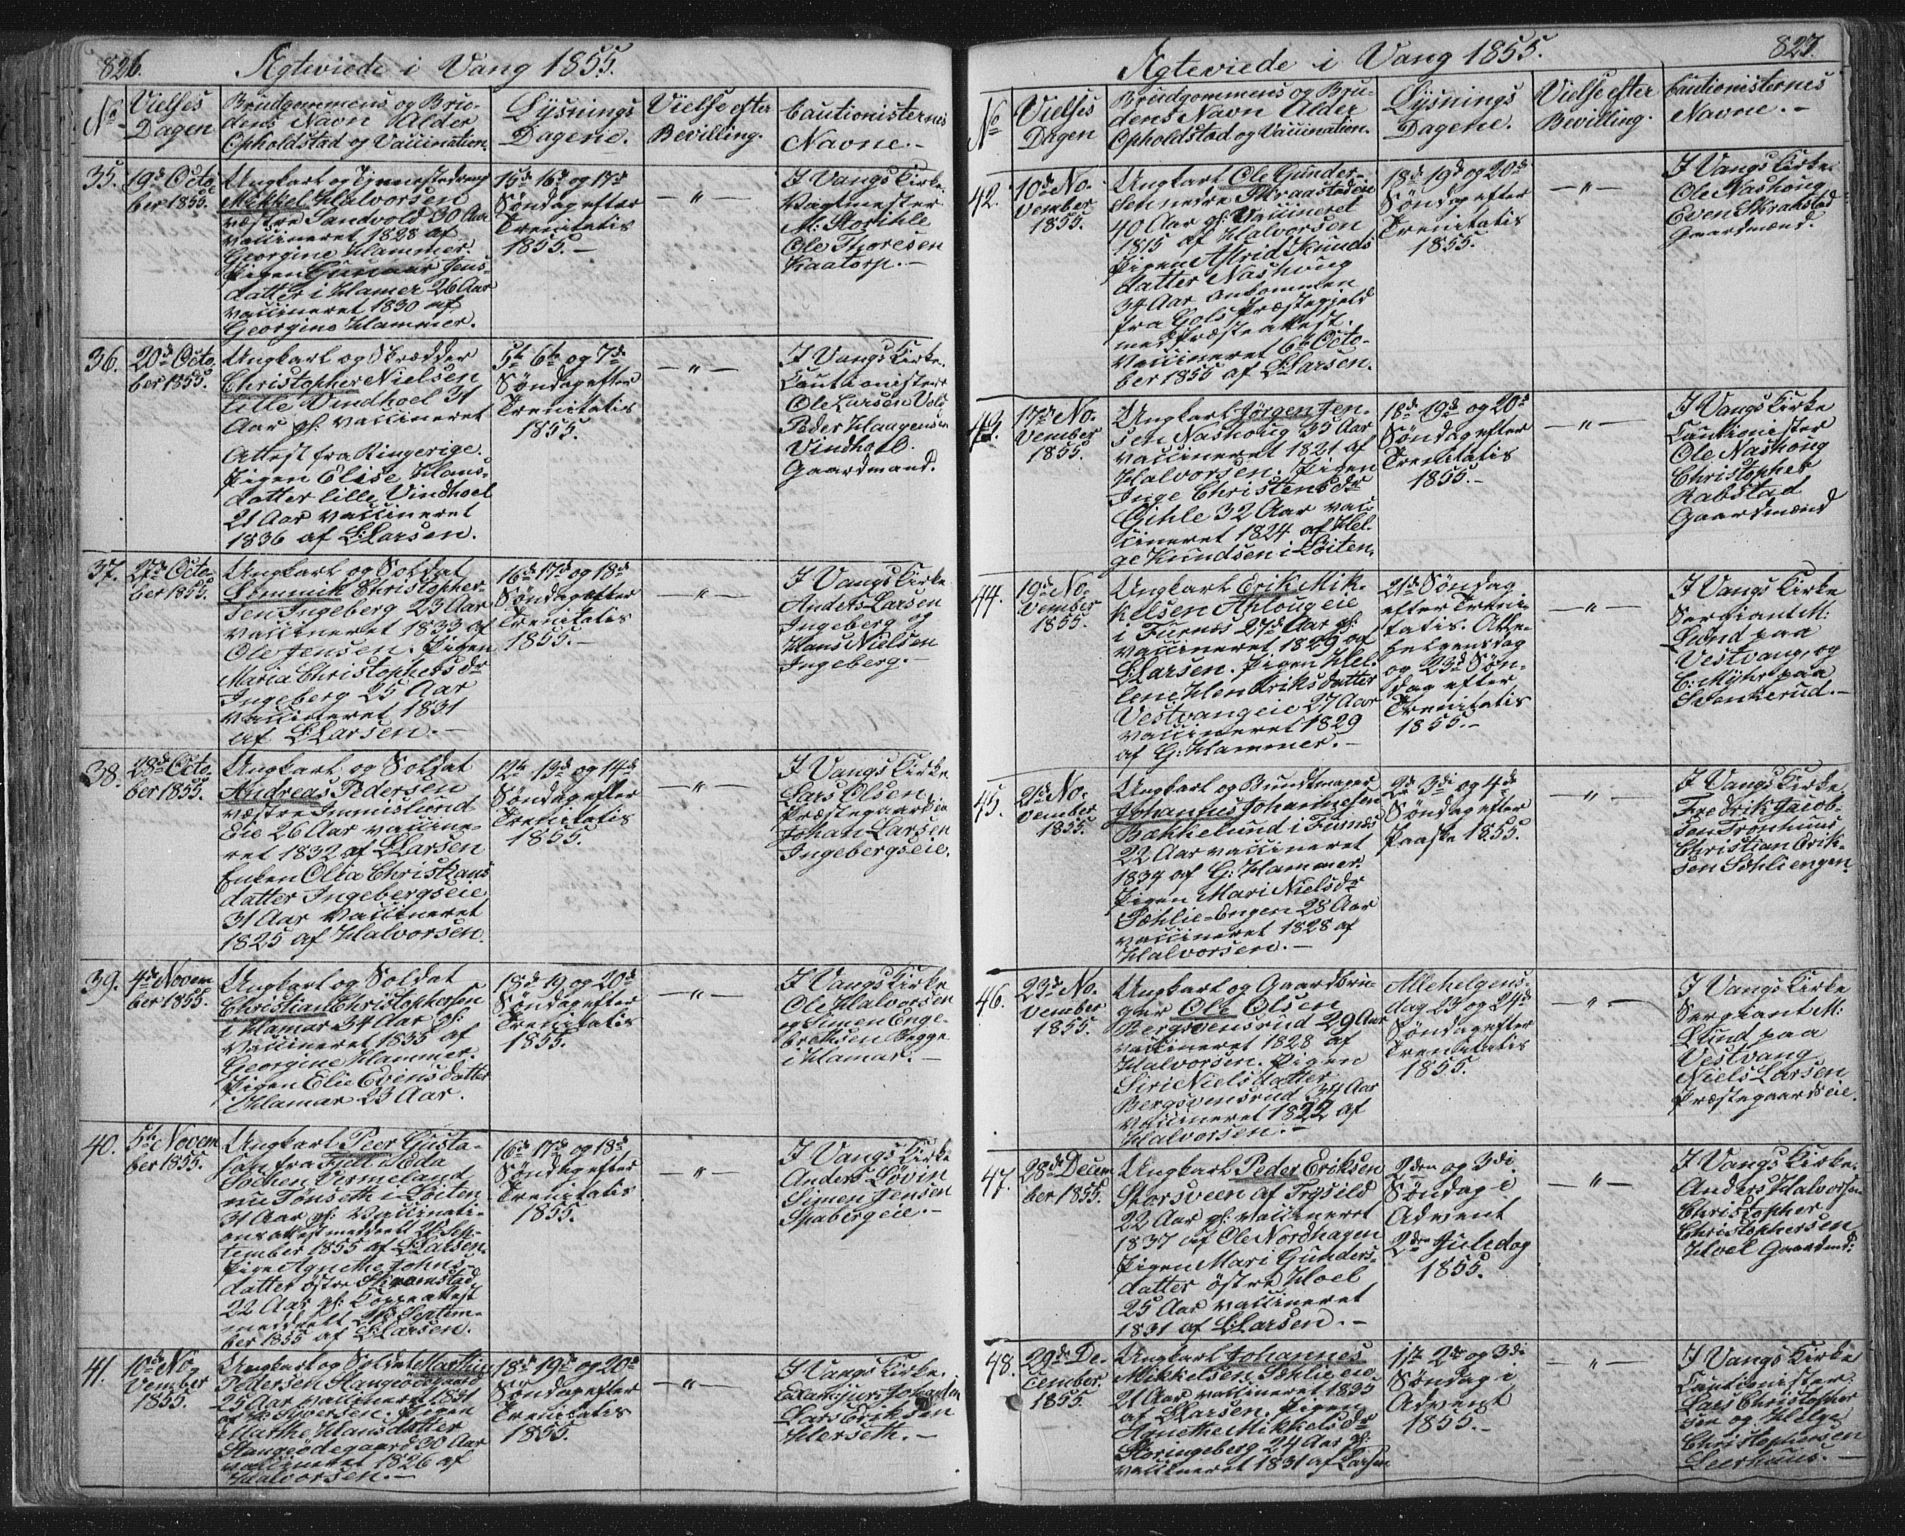 826.
Ægteviede i Vang 1855.
No
Vielses
Dagen
Brudgommens og Bru-
dens Navn Alder
Opholdstad og Vaccination.
Lysnings
Dagene.
Vielse efter
Bevilling.
Cautionisternes
Navne.-
35.
19d Octo
ber 1855.
Ungkarl og Tjenestedreng
Mikkel Halvorsen
vestre Sandvold 30 Aar
vaccineret 1828 af
Georgine Hammer
Pigen Gunaar Jens-
datter i Hamer 26 Aar
vaccineret 1830 af
Georgine Hammer.
15d 16d og 17d
Søndag efter
Trenitatis
1855.-
-"-
I Vangs Kirke.
Vagtmester
M: Storihle
Ole Thoresen
Kaatorp.-
36.
20d Octo
ber 1855.
Ungkarl og Skrædder
Christopher Nielsen
Lille Vindhoel 31
Aar gl. vaccineret
Attest fra Ringerige.
Pigen Elise Hans-
datter lille Vindhoel
21 Aar vaccineret
1836 af L Larsen.
5te 6te og 7de
Søndag efter
Trenitatis
1855.
-"-
I Vangs Kirke.
Cautionister
Ole Larsen Vold
Peder Haagensen
Vindhoel.
Gaardmænd.
37.
27d Octo-
ber 1855.
Ungkarl og Soldat
Lemmik Christopher-
sen Ingeberg 23 Aar
vaccineret 1833 af
Ole Jensen. Pigen
Maria Christophersdr
Ingeberg 25 Aar
vaccineret 1831
af L Larsen.-
16d 17d og 18d
Søndag efter
Trenitatis
1855.-
-"-
I Vangs Kirke
Anders Larsen
Ingeberg og
Hans Nielsen
Ingeberg.-
38.
28d Octo
ber 1855.
Ungkarl og Soldat
Andreas Pedersen
vestre Immislund
Eie 26 Aar vaccine-
ret 1832 af L Larsen
Enken Olea Christians
datter Ingebergseie
31 Aar Vaccineret
1825 af Halvorsen.
12te 13d og 14d
Søndag efter
Trenitatis
1855.
-"-
I Vangs Kirke
Lars Olsen
Præstegaardseie
Johan Larsen
Ingebergseie.
39.
4d Novem
ber 1855.
Ungkarl og Soldat
Christian Christophersen
i Hamar 34 Aar gl:
Vaccineret 1835 af
Georgine Hammer.
Pigen Elie Evensdatter
i Hamar 23 Aar.
18d 19 og 20d
Søndag efter
Trenitatis
1855.
-"-
I Vangs Kirke
Ole Halvorsen
og Simen Enge-
bretsen Begge
i Hamar.-
40.
5te Novem
ber 1855.
Ungkarl Peer Gusta-
son fra Fjell i Eda
Sochen Vermeland
nu Tønseth i Løiten
31 Aar gl: Vaccinati-
onsattest meddelt 21 Sep-
tember 1855 af L Larsen.
Pige Agnethe Johns-
datter østre Skramstad
22 Aar gl: Koppeattest
meddeelt Septem-
ber 1855 af L Larsen.
16d 17d og 18d
Søndag efter
Trenitatis
1855.
-"-
I Vangs Kirke
Anders Løvin
Simen Jensen
Spabergeie.-
41.
10d No-
vember
1855.
Ungkarl og Soldat Mathias
Pedersen Stangeødegaard
25 Aar vaccineret 1831
af Pigen
Marthe Hansdatter
Stangeødegaard 30 Aar
vaccineret 1826 af
Halvorsen.-
18d 19d og 20d
Søndag efter
Trenitatis
1855.
-"-
I Vangs Kirke.
Johansen
Lars Eriksen
Herseth.-
827.
Ægteviede i Vang 1855.
No
Vielses
Dagen
Brudgommens og Bru-
dens Navn Alder
Opholdstad og Vaccination.
Lysnings
Dagene.
Vielse efter
Bevilling.
Cautionisternes
Navne.-
42.
10d No-
vember
1855.
Ungkarl Ole Gunder-
sen nedre Skraastadeie
40 Aar gl: Vaccineret
1815 af Halvorsen
Pigen Astrid Knuds
datter Nashoug
34 Aar ankommen
fra Gols Præstegjeld
med Præsteattest.
Vaccineret 6te Octo-
ber 1855 af L Larsen.
18d 19d og 20d
Søndag efter
Trenitatis
1855.
-"-
I Vangs Kirke.
Ole Nashoug
Even Skrabstad
Gaardmænd.
43.
17d No-
vember
1855.
Ungkarl Jørgen Jen-
sen Nashoug 35 Aar
vaccineret 1821 af
Halvorsen. Pigen
Inge Christensdr
Gihle 32 Aar vac-
cineret 1824 af Hel-
ge Knudsen i Løiten.
18d 19d og 20d
Søndag efter
Trenitatis
1855.-
-"-
I Vangs Kirke
Cautionister
Ole Nashoug
Christopher
Rabstad
Gaardmænd
44.
19d No-
vember
1855.
Ungkarl Erik Mik-
kelsen Aplougeie
i Furnes 27d Aar gl:
vaccineret 1829 af
L Larsen. Pigen Hel-
ene Henriksdatter
Vestvangeie 27 Aar
vaccineret 1829
af G: Hammer.-
21d Søndag
efter Treni-
tatis. Alle-
helgensdag
og 23d Søn-
dag efter
Trenitatis
1855.-
-"-
I Vangs Kirke
Sergiant M:
Lund paa
Vestvang, og
C: Myhr paa
Svenkerud.-
45.
21d No-
vember
1855.
Ungkarl og Bundtmager
Johannes Johannesen
Bækkelund i Furnes
22 Aar vaccineret
1834 af G: Hammer
Pigen Mari Nielsdr
Søhlie-Engen 28 Aar
vaccineret 1828 af
Halvorsen.-
2d 3di og 4d
Søndag efter
Paaske 1855.
-"-
I Vangs Kirke
Fredrik Jacob-
sen Tronhuus
Christian Erik-
sen Søhliengen
46.
23d No-
vember
1855.
Ungkarl og Gaardbru-
ger Ole Olsen
Bergsvensrud 29 Aar
vaccineret 1828 af
Halvorsen. Pigen
Siri Nielsdatter
Bergsvensrud 34 Aar
vaccineret 1822 af
Halvorsen.-
Allehelgens-
dag 23 og 24d
Søndag efter
Trenitatis
1855.
-"-
I Vangs Kirke
Sergiant M:
Lund paa
Vestvang
Niels Larsen
Præstegaardseie.
47.
28d Decem
ber 1855.
Ungkarl Peder Eriksen
Storsveen af Trysild
22 Aar gl: vaccineret
1837 af Ole Nordhagen
Pigen Mari Gunders-
datter østre Hoel
25 Aar vaccineret
1831 af L Larsen.-
2den og 3di
Søndag i
Advent
2den Juledag
1855.
-"-
I Vangs Kirke.
Anders Halvorsen
Christopher
Christophersen
Hoel Gaardmd:
48.
29d De-
cember
1855.
Ungkarl Johannes
Mikkelsen Søhlie eie
21 Aar vaccineret 1835
af L Larsen. Pigen
Agnethe Mikkelsdr
Storingeberg 24 Aar gl:
vaccineret 1831 af Larsen
11te 2de og 3di
Søndag i
Advent
1855.-
-"-
I Vangs Kirke
Cautionister:
Lars Christopher
sen og Helge
Christophersen
Leerhuus.-